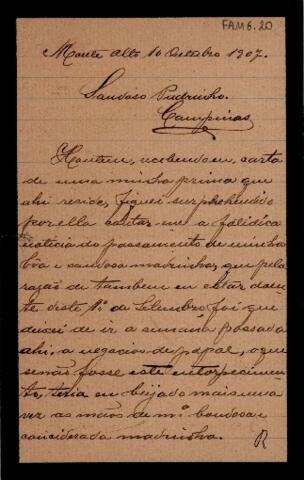 FAM 6.20
Monte Alto 10 Outubro 1907.
Saudoso Padrinho.
Campinas
Hontem, recebendo eu, carta
de uma minha prima que
ahi reside, fiquei surprehendido
por ella contar-me a fatidica
noticia do passamento de minha
bôa e saudosa madrinha, que pela
razão de tambem eu estar doen-
te deste 1º de Setembro, foi que
deixei de ir a semana passada
ahi, a negocios de papae, o que
se não fosse este entorpecimen-
to, teria eu beijado mais uma
vez as mãos de mª bondosa e
considerada madrinha.
R